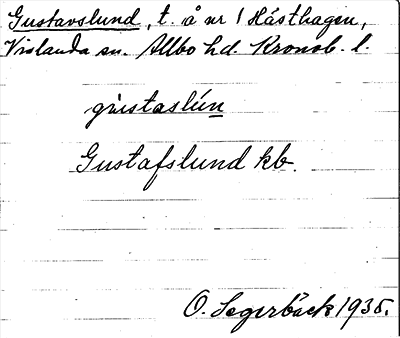 Gustavslund, t. å nr 1 Hästhagen,
Vislanda sn. Allbo hd. Kronob. l.
gústaslún
Gustafslund kb.
O. Segerbäck 1935.